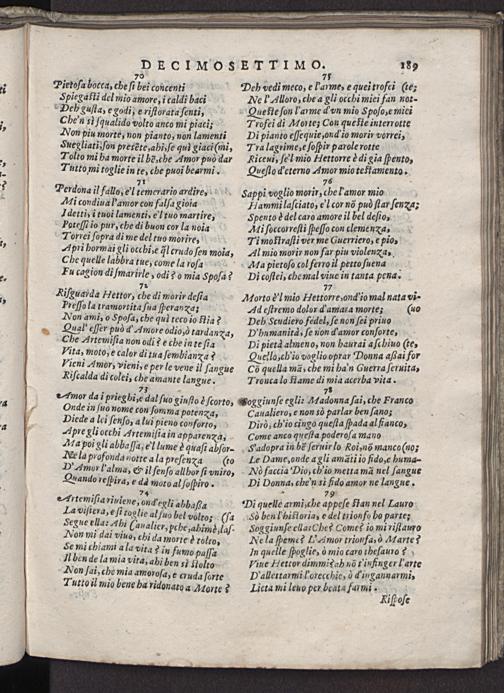 DECIMOSETTIMO. 189
70
Pietosa bocca, che si bei concenti
Spiegasti del mio amore, i caldi baci
Deh gusta, e godi, e ristorata senti,
Che'n sì squalido volto anco mi piaci;
Non piu morte, non pianto, non lamenti
Suegliati; son presẽte, ahi, se quì giaci (mi,
Tolto mi ha morte il bẽ, che Amor può dar
Tutto mi toglie in te, che puoi bearmi.
71
Perdona il fallo, e'l temerario ardire,
Mi condiua l'amor con falsa gioia
I detti, i tuoi lamenti, e'l tuo martire,
Potess' io pur, che di buon cor la noia
Torrei sopra di me del tuo morire,
Apri hormai gli occhi, e q̃l crudo sen moia,
Che quelle labbra tue, come la rosa
Fu cagion di smarirle, odi? o mia Sposa?
72
Risguarda Hettor, che di morir desia
Presso la tramortita sua speranza;
Non ami, o Sposa, che quì teco io stia?
Qual' esser può d'Amore odio, ò tardanza,
Che Artemisia non odi? e che in te sia
Vita, moto, e calor di tua sembianza?
Vieni Amor, vieni, e per le vene il sangue
Riscalda di colei, che amante langue.
73
Amor da i prieghi, e dal suo giusto è scorto,
Onde in suo nome con somma potenza,
Diede a lei senso, a lui pieno conforto,
Apre gli occhi Artemisia in apparenza,
Ma poi gli abbassa, e'l lume è quasi absor-
Ne la profonda notte a la presenza (to
D'Amor l'alma, & il senso allhor s'vniro,
Quando respira, e dà moto al sospiro.
74
Artemisia riuiene, ond'egli abbassa
La visiera, e si toglie al suo bel volto; (sa
Segue ella: Ahi Caualier, pche, ahimè, las-
Non mi dai viuo, chi da morte è tolto,
Se mi chiami a la vita? in fumo passa
Il ben de la mia vita, ahi ben sì stolto
Non sai, che mia amorosa, e cruda sorte
Tutto il mio bene ha ridonato a Morte?
75
Deh vedi meco, e l'arme, e quei trofei (te;
Ne l'Alloro, che a gli occhi miei fan not-
Queste son l'arme d'vn mio Sposo, e miei
Trofei di Morte; Con queste interrotte
Di pianto essequie, ond'io morir vorrei,
Tra lagrime, e sospir parole rotte
Riceui, se'l mio Hettorre è di gia spento,
Questo d'eterno Amor mio testamento.
76
Sappi voglio morir, che l'amor mio
Hammi lasciato, e'l cor nõ può star senza;
Spento è del caro amore il bel desio,
Mi soccorresti spesso con clemenza,
Ti mostrasti ver me Guerriero, e pio,
Al mio morir non far piu violenza,
Ma pietoso col ferro il petto suena
Di costei, che mal viue in tanta pena.
77
Morto è'l mio Hettorre, ond'io mal nata vi-
Ad estremo dolor d'amara morte; (uo
Deh Scudiero fedel, se non sei priuo
D'humanità, se non d'amor conforte,
Di pietà almeno, non haurai aschiuo (te,
Quello, ch'io voglio oprar Donna assai for
Cõ quella mã, che mi ha'n Guerra seruita,
Tronca lo stame di mia acerba vita.
78
Soggiunse egli: Madonna sai, che Franco
Caualiero, e non sò parlar ben sano;
Dirò, ch'io cingo questa spada al fianco,
Come anco questa poderosa mano
S'adopra in bẽ seruir lo Roi, nõ manco (no;
Le Dame, onde a gli amãti io fido, e huma-
Nõ faccia Dio, ch'io metta mã nel sangue
Di Donna, che'n sì fido amor ne langue.
79
Di quelle armi, che appese stan nel Lauro
Sò ben l'historia, e del trionfo ho parte;
Soggiunse ella: Che? Come? io mi ristauro
Ne la speme? L'Amor trionfa, ò Marte?
In quelle spoglie, ò mio caro thesauro?
Viue Hettor dimmi? ah nõ t'infinger l'arte
D'allettarmi l'orecchie, ò d'ingannarmi,
Lieta mi leuo per beata farmi.
Rispose